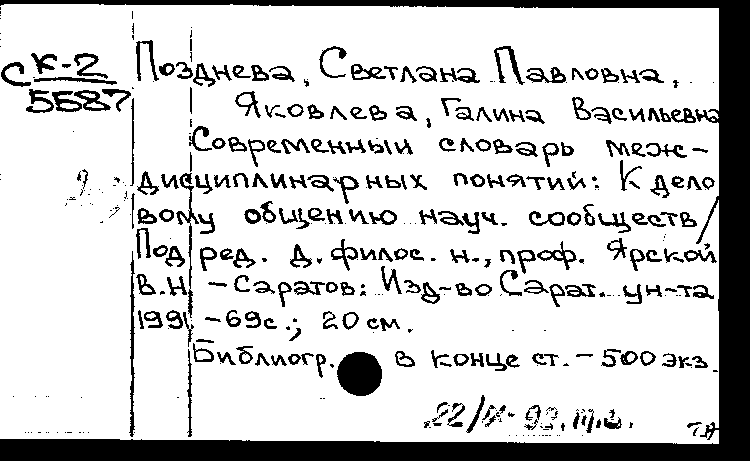 С К-2
5587
Позднева, Светлана Павловна,
Яковлева, Галина Васильевна
Современный словарь меж-
дисциплинарных понятий: К дело
вому общению науч. сообществ/
Под ред. д. филос. н., проф. Ярской
В.Н. - Саратов: Изд-во Сарат. ун-та
1991. - 69с.; 20 см.
Библиогр. в конце ст. - 500 экз.